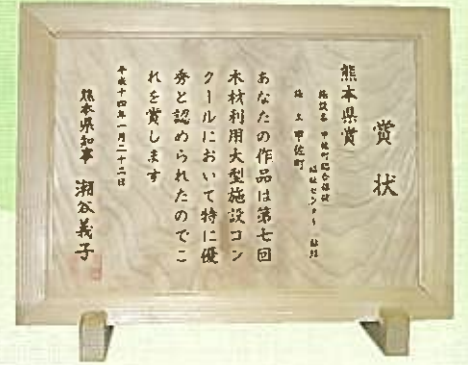 賞状
熊本県賞
施設名 甲佐町総合保健
福祉センター
施主 甲佐町
あなたの作品は第七回
木材利用大型施設コン
クールにおいて特に優
秀と認められたのでこ
れを賞します
平成十四年一月二十二日
熊本県知事 潮谷義子